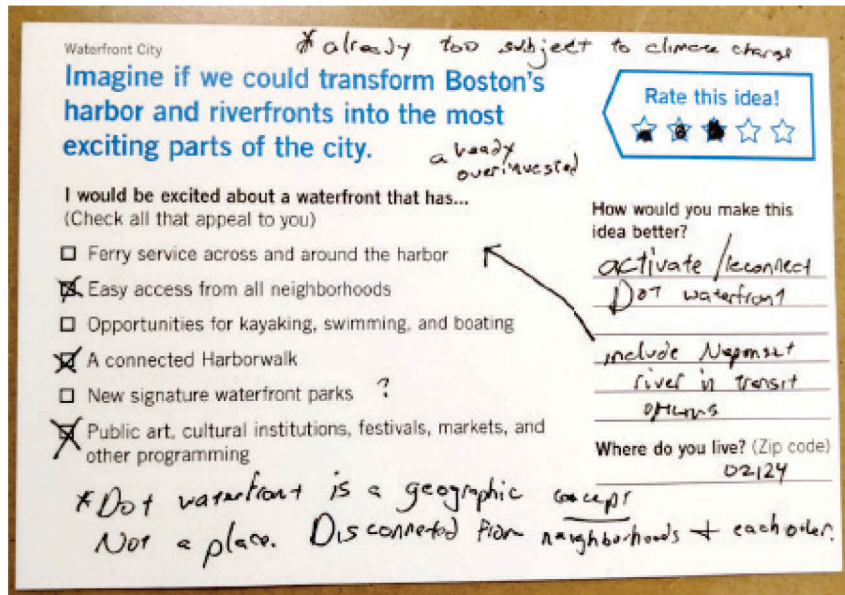 Waterfront City
* already too subject to climate change
Imagine if we could transform Boston's
harbor and riverfronts into the most
exciting parts of the city.
already
overinvested
Rate this idea!
I would be excited about a waterfront that has...
(Check all that appeal to you)
Ferry service across and around the harbor
Easy access from all neighborhoods
Opportunities for kayaking, swimming, and boating
A connected Harborwalk
New signature waterfront parks ?
Public art, cultural institutions, festivals, markets, and
other programming
How would you make this
idea better?
activate / reconnect
Dot waterfront
include Neponset
river in transit
options
Where do you live? (Zip code)
02124
* Dot waterfront is a geographic concept
Not a place. Disconnected from neighborhoods + each other.